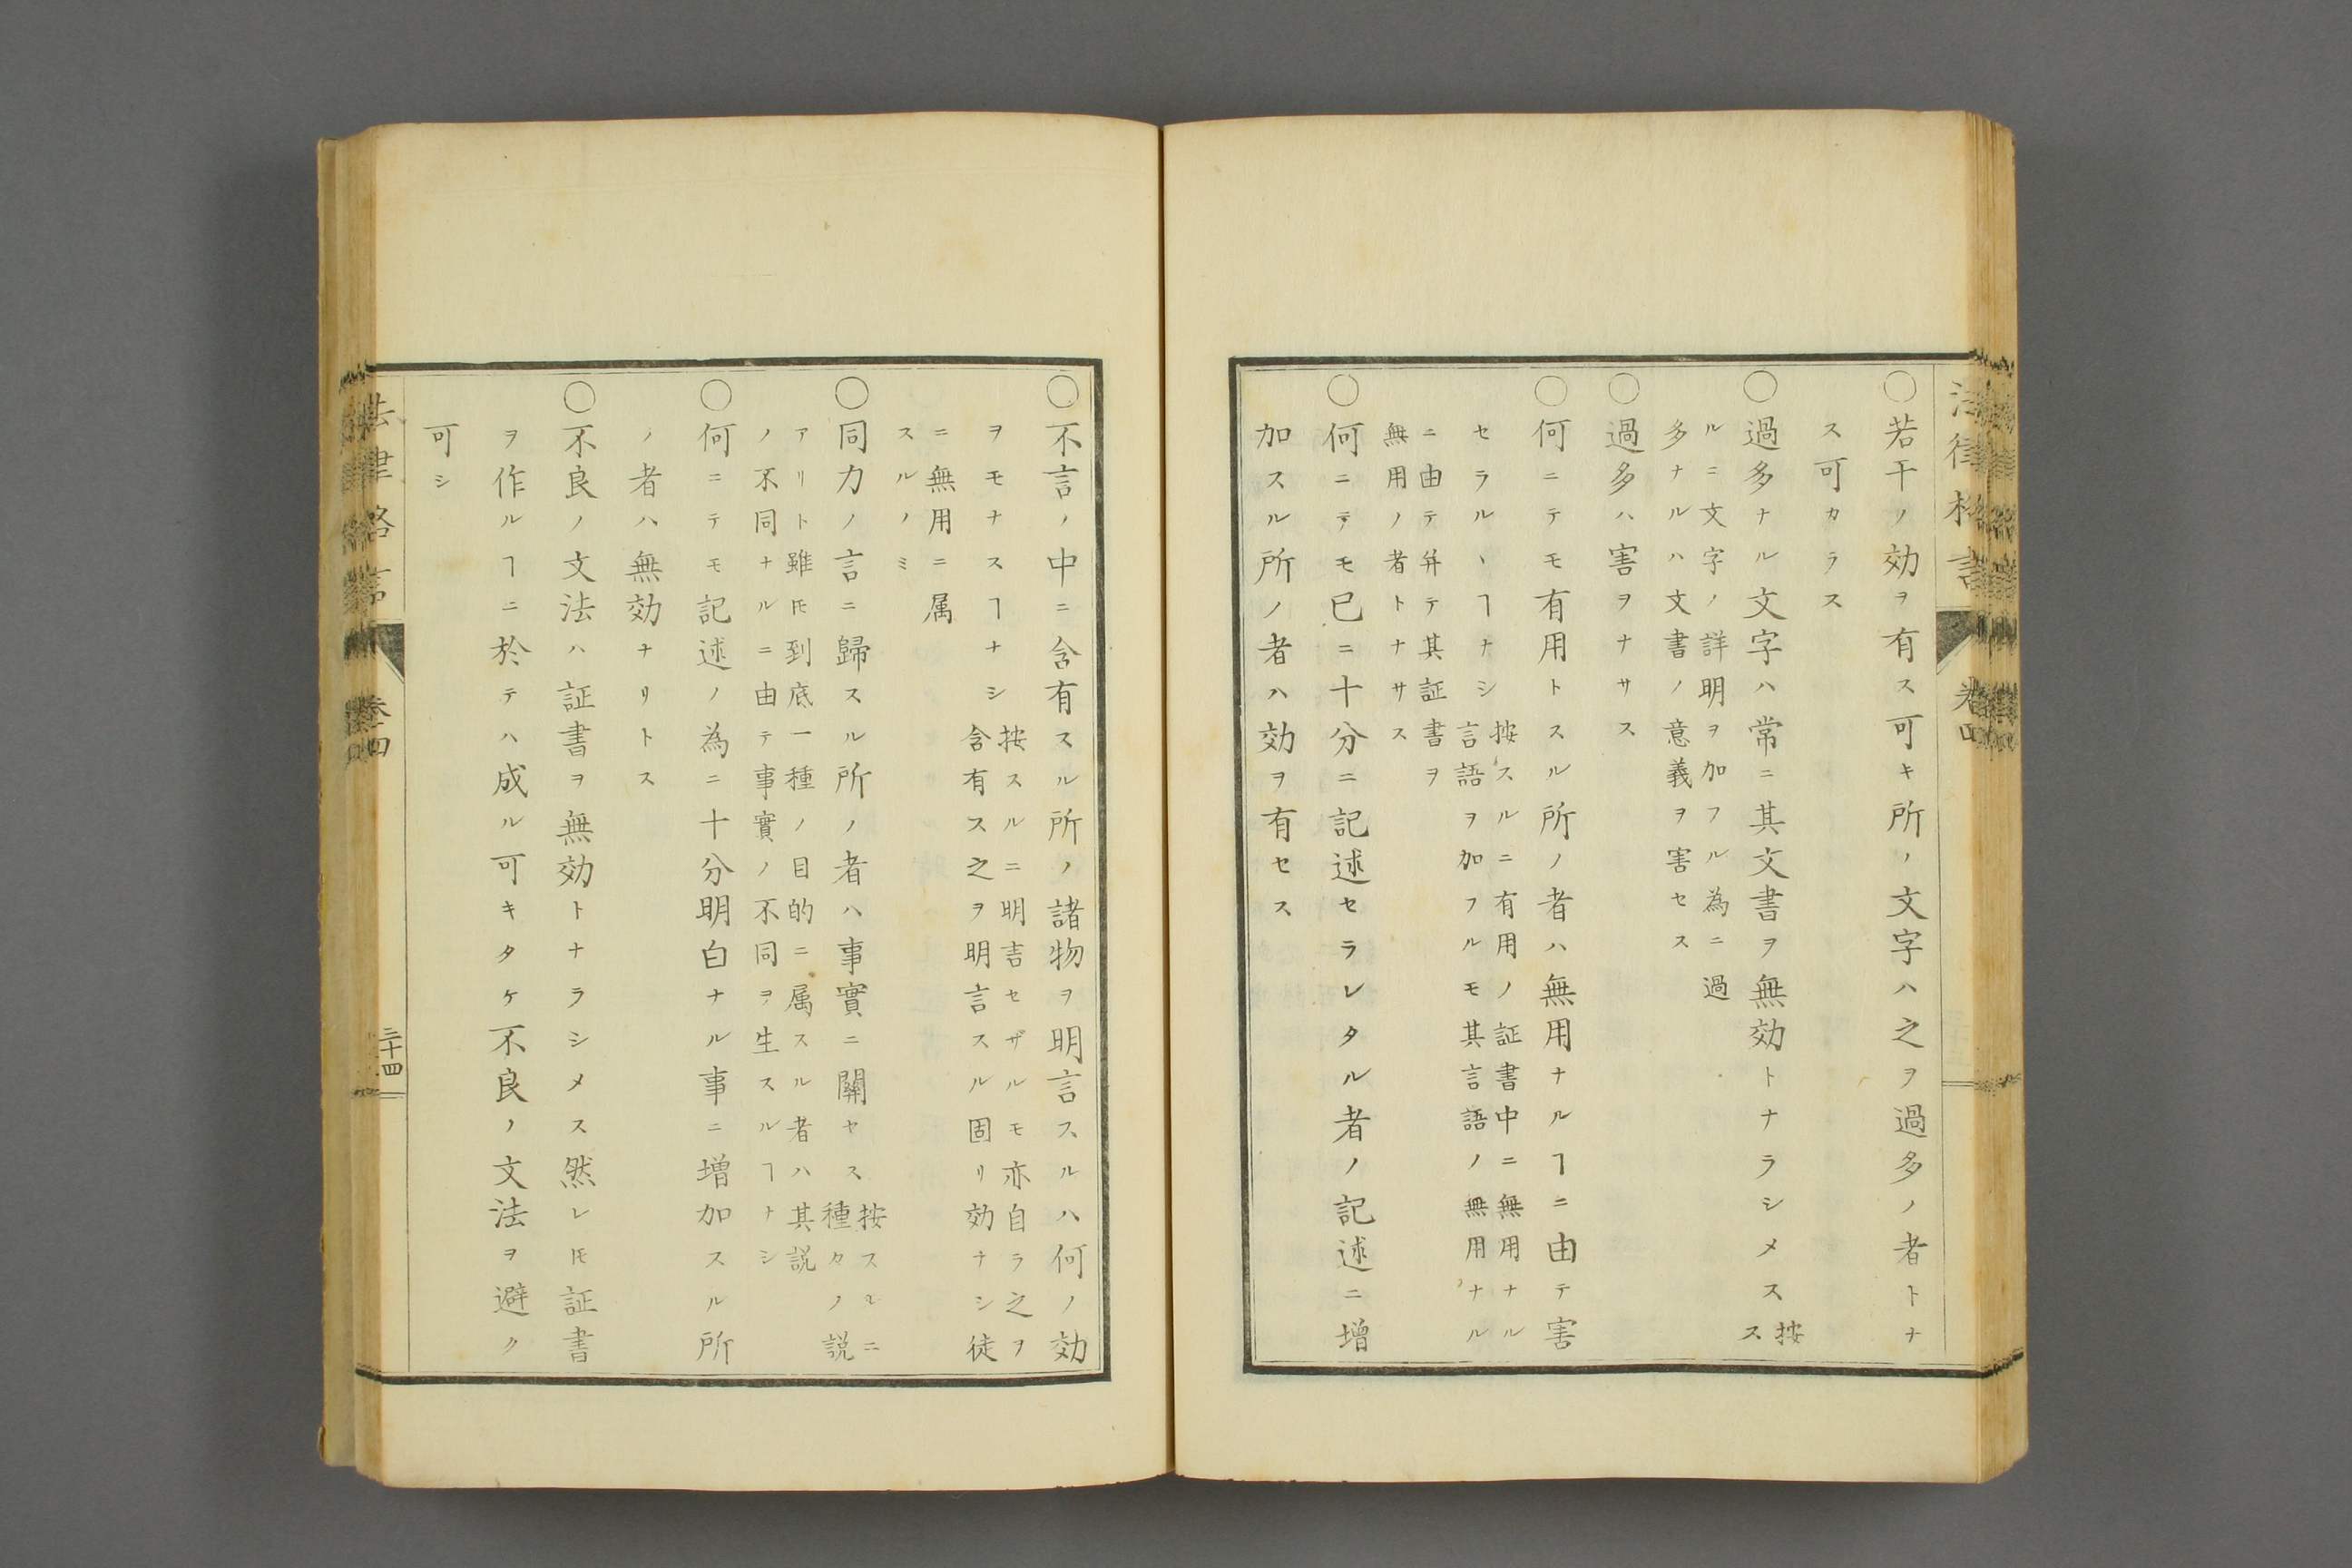 〇若干ノ効ヲ有ス可キ所ノ文字ハ之ヲ過多ノ者トナ
ス可カラス
〇過多ナル文字ハ常ニ其文書ヲ無効トナラシメス按ス
ルニ文字ノ詳明ヲ加フル為ニ過
多ナルハ文書ノ意義ヲ害セス
〇過多ハ害ヲナサス
〇何ニテモ有用トスル所ノ者ハ無用ナルヿニ由テ害
セラルヽヿナシ
按スルニ有用ノ証書中ニ無用ナル
言語ヲ加フルモ其言語ノ無用ナル
ニ由テ并テ其証書ヲ
無用ノ者トナサス
〇何ニテモ已ニ十分ニ記述セラレタル者ノ記述ニ増
加スル所ノ者ハ効ヲ有セス
法律格言
巻四
〇不言ノ中ニ含有スル所ノ諸物ヲ明言スルハ何ノ効
ヲモナスヿナシ
按スルニ明言セザルモ亦自ラ之ヲ
含有ス之ヲ明言スル固リ効ナシ徒
ニ無用ニ属
スルノミ
〇同力ノ言ニ歸スル所ノ者ハ事實ニ關ヤス
按スルニ
種々ノ説
アリト雖モ到底一種ノ目的ニ属スル者ハ其説
ノ不同ナルニ由テ事實ノ不同ヲ生スルヿトシ
〇何ニテモ記述ノ為ニ十分明白ナル事ニ増加スル所
ノ者ハ無効ナリトス
〇不良ノ文法ハ証書ヲ無効トナラシメス然レ𪜈証書
ヲ作ルヿニ於テハ成ル可キタケ不良ノ文法ヲ避ク
可シ
法律格言
巻四
三十四